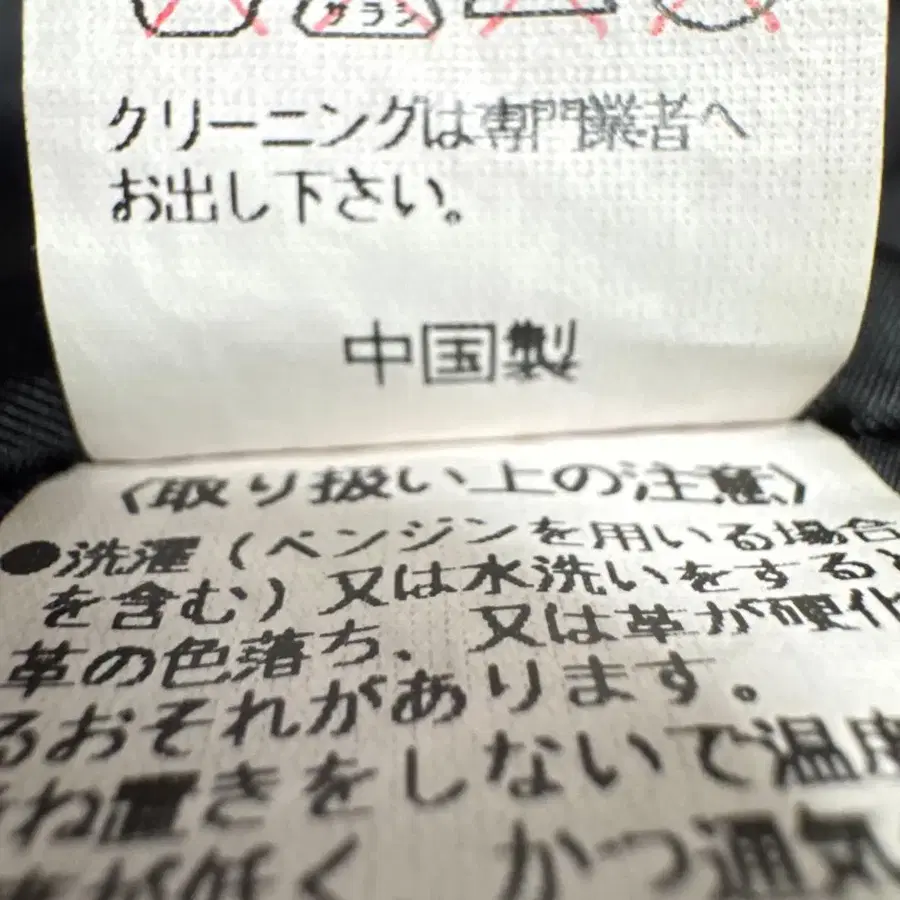 サラシ
クリーニングは専門業者へ
お出し下さい。
中国製
〈取り扱い上の注意〉
●洗濯(ベンジンを用いる場合
を含む)又は水洗いをすると
革の色落ち、又は革が硬化
るおそれがあります。
ね置きをしないで温度
が低く、かつ通気